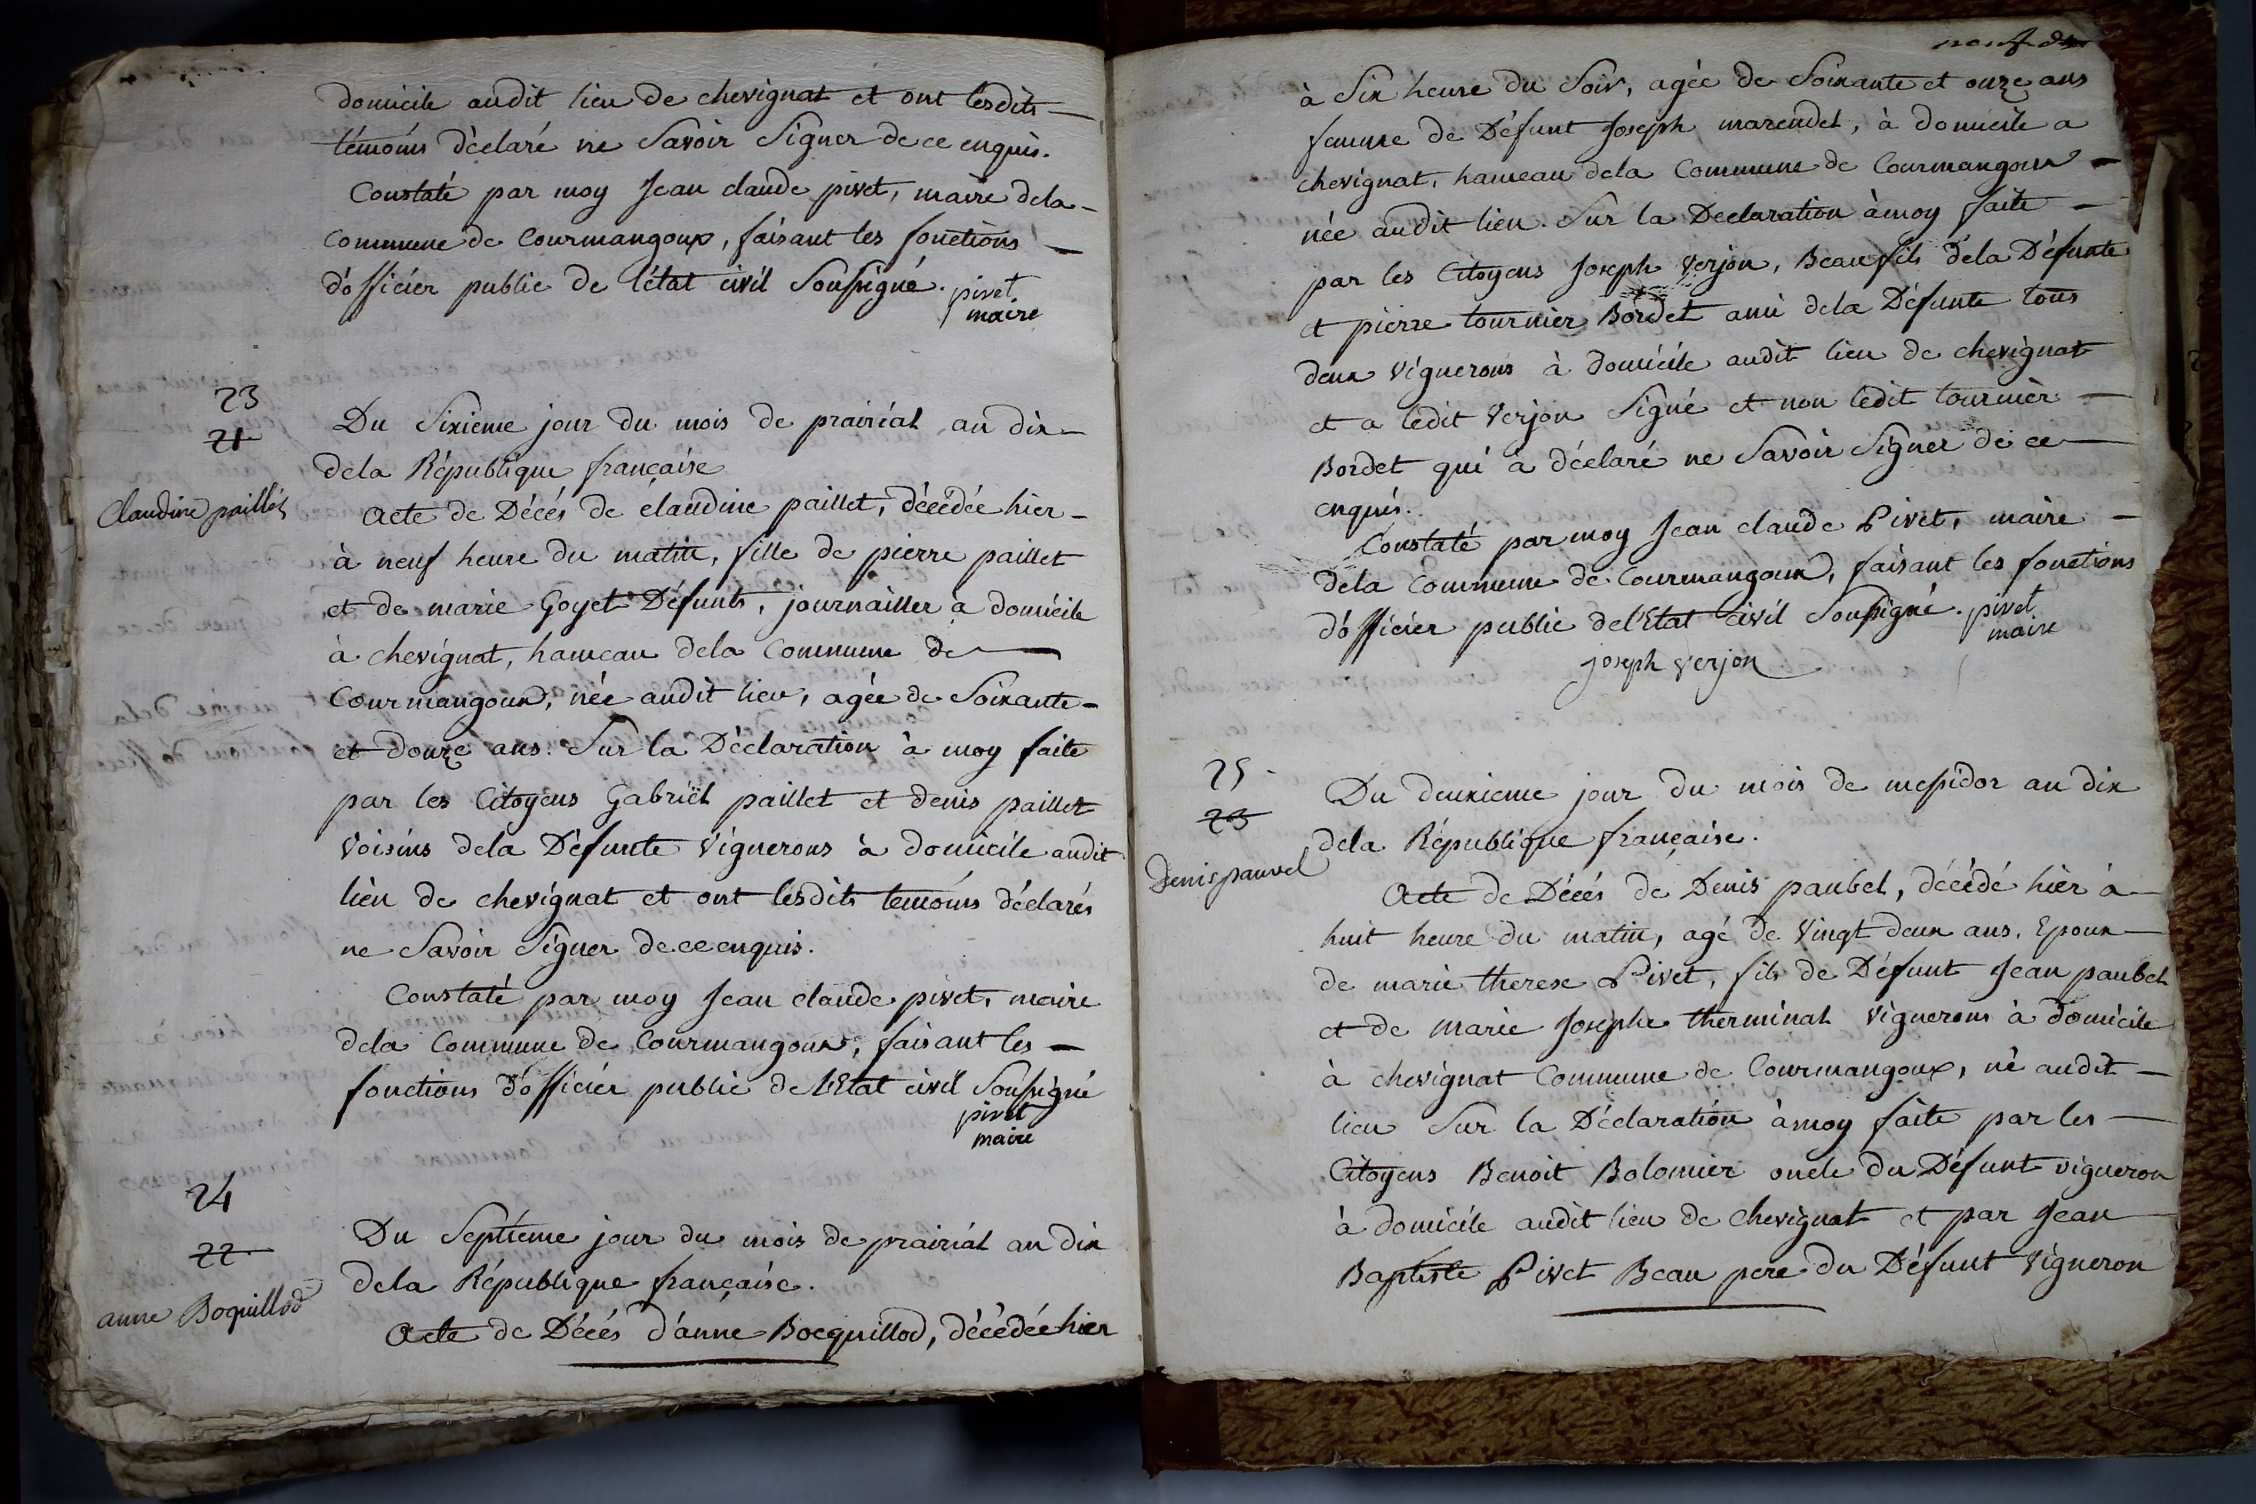 domicile audit lieu de chevignat et ont lesdits
témoins déclaré ne Savoir Signer de ce enquis.
Constaté par moy Jean claude pivet, maire dela
commune de Courmangoux, faisant les fonctions
d'officier public de l'état civil Soussigné. pivet
maire
23
21
Claudine paillet
Du Sixieme jour du mois de prairéal an dix
dela République française
Acte de Décés de claudine paillet, décédée hier
à neuf heure du matin, fille de pierre paillet
et de marie Goyet Défunts, journailler a domicile
à chevignat, hameau dela Commune de
Courmangoux, née audit lieu, agée de Soixante
et douze ans. Sur la Déclaration à moy faite
par les Citoyens Gabriël paillet et denis paillet
Voisins dela Défunte Vignerons à domicile audit
lieu de chevignat et ont lesdits temoins déclarés
ne Savoir Signer de ce enquis.
Constaté par moy Jean claude pivet, maire
dela Commune de Courmangoux, faisant les
fonctions d'officier public de l'Etat civil Soussigné
pivet
maire
24
22
anne Boquillod
Du Septieme jour du mois de prairial an dix
dela République française.
Acte de Décés d'anne Bocquillod, décédée hier
à Six heure du Soir, agée de Soixante et onze ans
femme de Défunt Joseph marendet, à domicile a
chevignat, hameau dela Commune de Courmangoux
née audit lieu. Sur la Declaration à moy faite
par les Citoyens Joseph Verjon, Beaufils dela Défunte
et pierre tournier Bordet ami dela Défunte tous
deux Vignerons à domicile audit lieu de chevignat
et a ledit Verjon Signé et non ledit tournier
Bordet qui à déclaré ne Savoir Signer de ce
enquis.
Constaté par moy Jean claude Pivet, maire
dela Commune de Courmangoux, faisant les fonctions
d'officier public de l'Etat civil Soussigné. pivet
maire
joseph verjon
25
23
Denis pauvel
Du deuxieme jour du mois de messidor an dix
dela République française.
Acte de Décés de Denis paubel, décédé hier à
huit heure du matin, agé de Vingt deux ans. Epoux
de marie therese Pivet, fils de Défunt Jean paubel
et de Marie Josephe therminal Vignerons à domicile
à chevignat Commune de Courmangoux, né audit
lieu Sur la Déclaration à moy faite par les
Citoyens Benoit Bolomier oncle du Défunt vigneron
à domicile audit lieu de chevignat et par Jean
Baptiste Pivet Beau pere du Défunt Vigneron